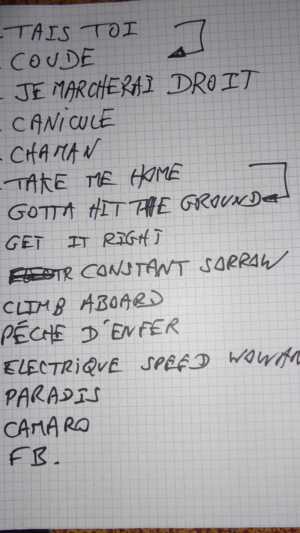 - TAIS TOI
- COUDE
- JE MARCHERAI DROIT
- CANICULE
- CHAMAN
- TAKE ME HOME
GOTTA HIT THE GROUND
GET IT RIGHT
CONSTANT SORROW
CLIMB ABOARD
PÉCHE D'ENFER
ELECTRIQUE SPEED
PARADIS
CAMARO
FB.